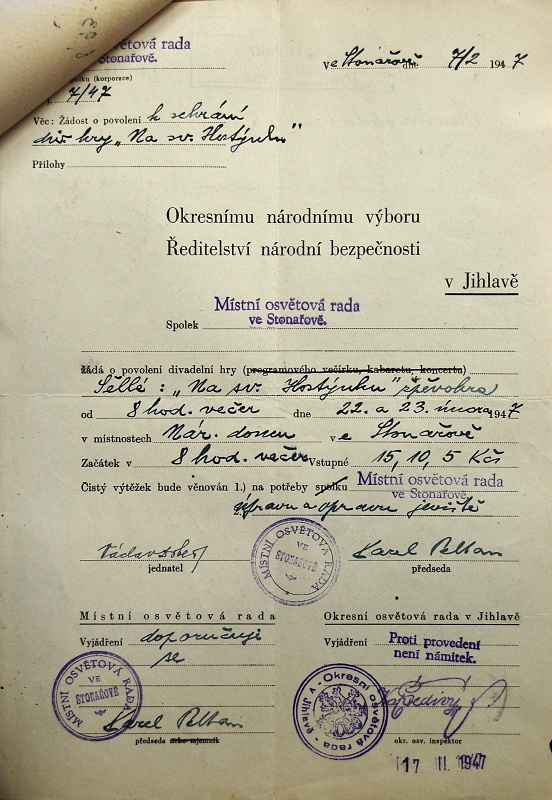 světová rada
Stonařově.
spolku (korporace)
7/47
Ve Stonařově dne 7/2 1947
Věc: Žádost o povolení k sehrání
div. hry „Na sv. Hostýnku“
Přílohy
Okresnímu národnímu výboru
Ředitelství národní bezpečnosti
v Jihlavě
Místní osvětová rada
Spolek ve Stonařově.
žádá o povolení divadelní hry (programového večírku, kabaretu, koncertu)
„Na sv. Hostýnku“ zpěvohra
od 8 hod. večer dne 22. a 23. února 1947
v místnostech Nár. domu ve Stonařově
Začátek v 8 hod. večer Vstupné 15, 10, 5 Kčs
Čistý výtěžek bude věnován 1.) na potřeby spolku Místní osvětová rada
ve Stonařově.
2. úpravu a opravu jeviště
MÍSTNI OSVĚTOVÁ RADA VE STONAŘOVĚ
Václav Karel Pelkan
jednatel předseda
Místní osvětová rada
Vyjádření doporučuje
se
MÍSTNI OSVĚTOVÁ RADA VE STONAŘOVĚ
Karel Pelkan
předseda nebo tajemník
Okresní osvětová rada v Jihlavě
Vyjádření Proti provedení
není námitek.
Okresní osvětová rada v Jihlavě
okr. osv. inspektor
17 II. 1947